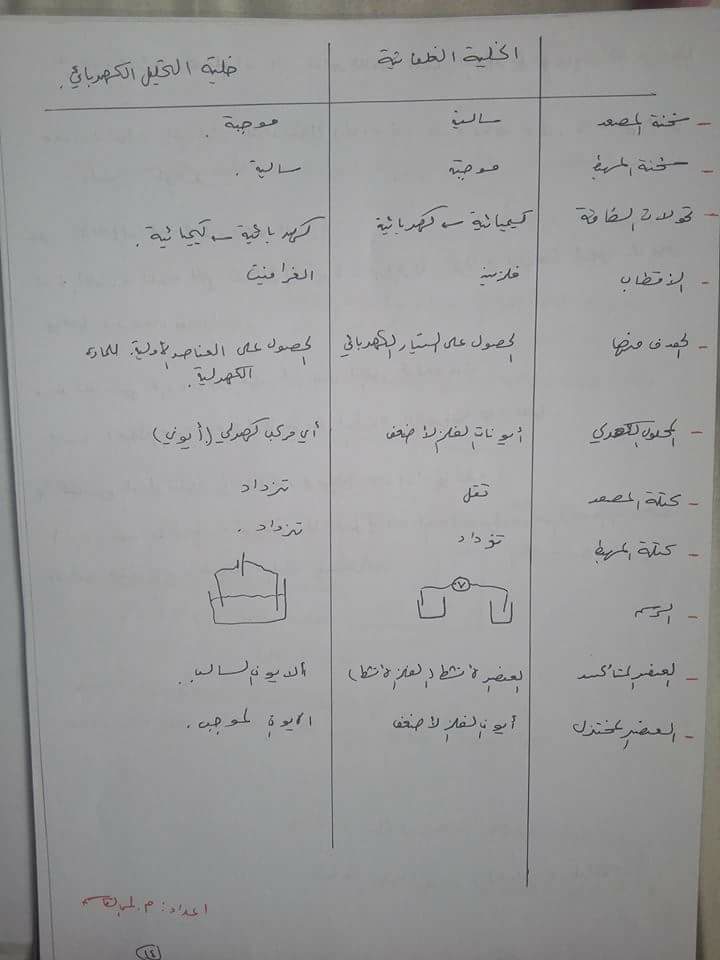 الخلية الغلفانية خلية التحليل الكهربائي.
- شحنة المصعد سالبة موجبة.
- شحنة المهبط موجبة سالبة.
- تحولات الطاقة كيميائية ← كهربائية كهربائية ← كيميائية.
- الأقطاب فلزين الغرافيت
- الهدف منها الحصول على التيار الكهربائي الحصول على العناصر الأولية للمادة
الكهرلية.
- المحلول الكهرلي أيونات الفلز الأضعف أي مركب كهرلي (أيوني)
- كتلة المصعد تقل تزداد
- كتلة المهبط تزداد تزداد.
- الرسم V
- العنصر المتأكسد العنصر الأنشط (الفلز الأنشط) الايون السالب.
- العنصر المختزل أيون الفلز الأضعف الايون الموجب.
اعداد: م.
١٤